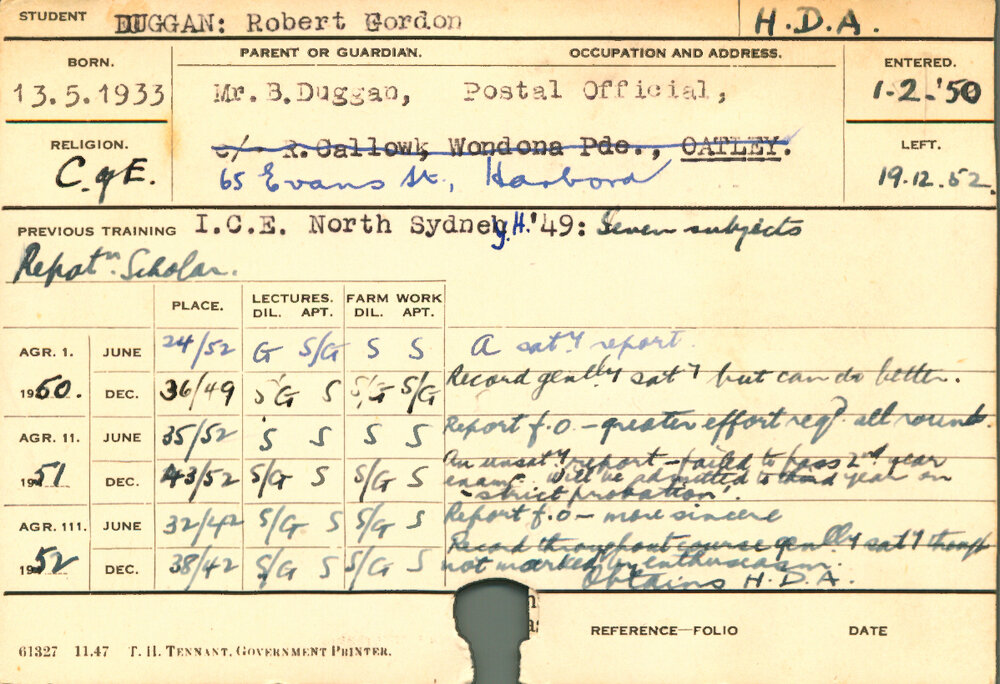 STUDENT DUGGAN: Robert Gordon H.D.A.
BORN. PARENT OR GUARDIAN. OCCUPATION AND ADDRESS. ENTERED.
13.5.1933 Mr. B. Duggan, Postal Official, 1-2-'50
RELIGION. c/- R. Callowk, Wondona Pde., OATLEY. LEFT.
C. of E. 65 Evans St., Harbord 19.12.52.
PREVIOUS TRAINING I.C.E. North Sydney H. '49: Seven subjects
Repatn. Scholar.
PLACE. LECTURES. FARM WORK
DIL. APT. DIL. APT.
AGR. 1. JUNE 24/52 G S/G S S A saty report.
1950. DEC. 36/49 S/G S S/G S/G Record genlly saty but can do better.
AGR. 11. JUNE 35/52 S S S S Report f.o. - greater effort reqd all round.
1951 DEC. 43/52 S/G S S/G S An unsaty report - failed to pass 2nd year
exams. Will be admitted to third year on
"strict probation".
AGR. 111. JUNE 32/42 S/G S S/G S Report f.o - more sincere
1952 DEC. 38/42 S/G S S/G S Record throughout course genlly saty though
not marked by enthusiasm.
Obtains H.D.A.
REFERENCE—FOLIO DATE
61327 11.47 T. H. TENNANT, GOVERNMENT PRINTER.